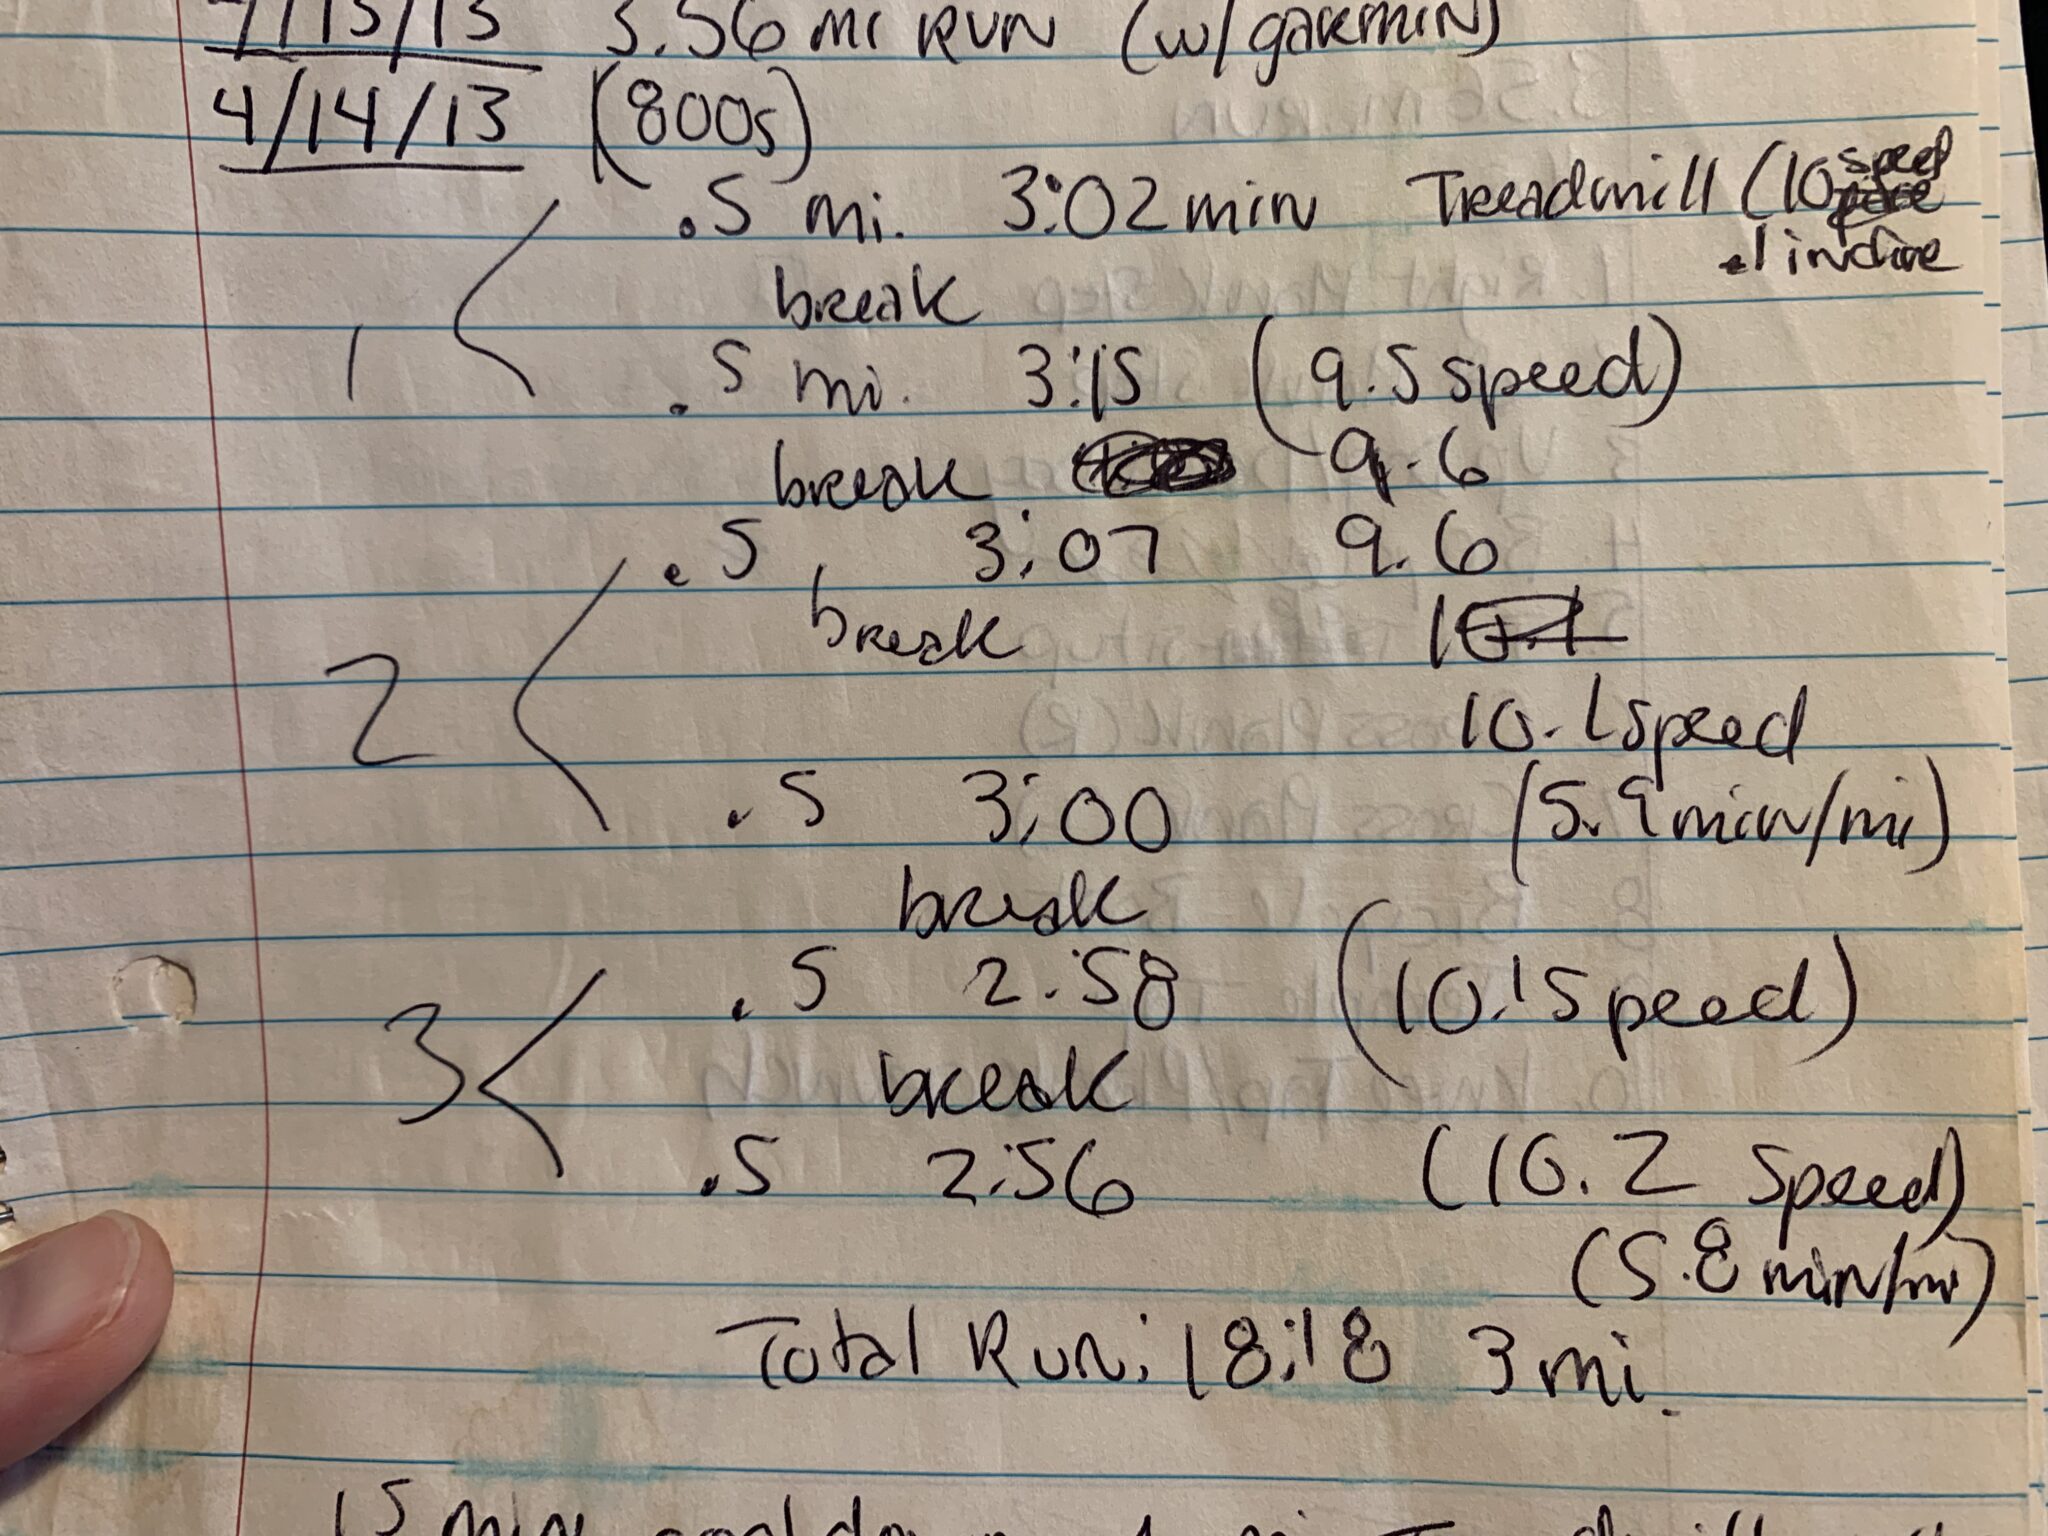 7/15/13 3.56 mi RUN (w/garmin)
4/14/13 (800s)
1 .5 mi. 3:02 min Treadmill (10 speed
.1 incline
break
.5 mi. 3:15 (9.5 speed)
break 9.6
2 .5 3:07 9.6
break 10.1
10.1 speed
.5 3:00 (5.9 min/mi)
break
3 .5 2:58 (10.1 Speed)
break
.5 2:56 (10.2 Speed)
(5.8 min/mi)
Total Run: 18:18 3 mi.
15 min cool down